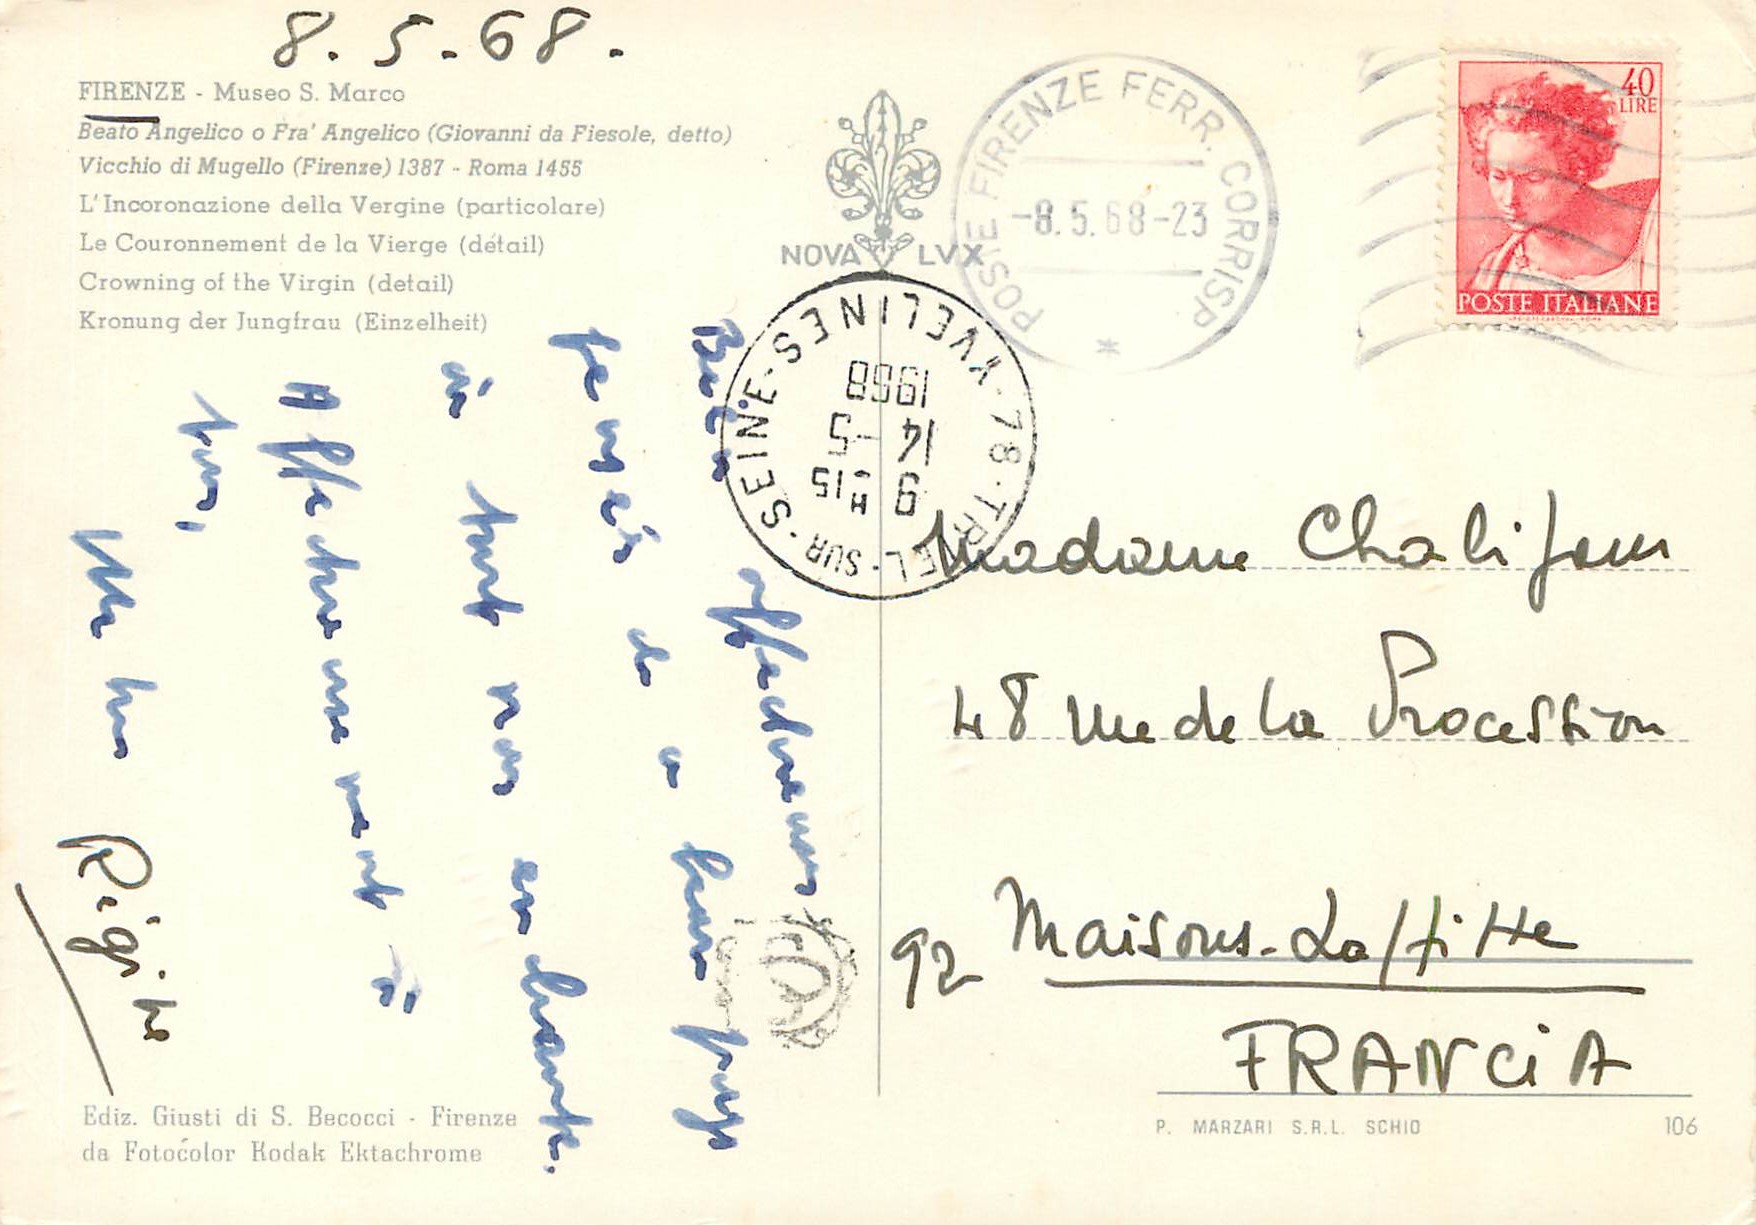 8.5.68.
FIRENZE - Museo S. Marco
Beato Angelico o Fra' Angelico (Giovanni da Fiesole, detto)
Vicchio di Mugello (Firenze) 1387 - Roma 1455
L'Incoronazione della Vergine (particolare)
Le Couronnement de la Vierge (détail)
Crowning of the Virgin (detail)
Kronung der Jungfrau (Einzelheit)
NOVA LVX
POSTE FIRENZE FERR. CORRISP
-8.5.68-23
40
LIRE
POSTE ITALIANE
78-TRIEL-SUR-SEINE-YVELINES
9 H 15
14 -5
1968
Bien affectueuses
pensées de ce beau pays
où tout nous enchante.
Affectueusement à
tous,
Brigitte
Madame Chalifour
48 rue de la Procession
92 Maisons-Laffitte
FRANCIA
Ediz. Giusti di S. Becocci - Firenze
da Fotocolor Kodak Ektachrome
P. MARZARI S.R.L. SCHIO
106